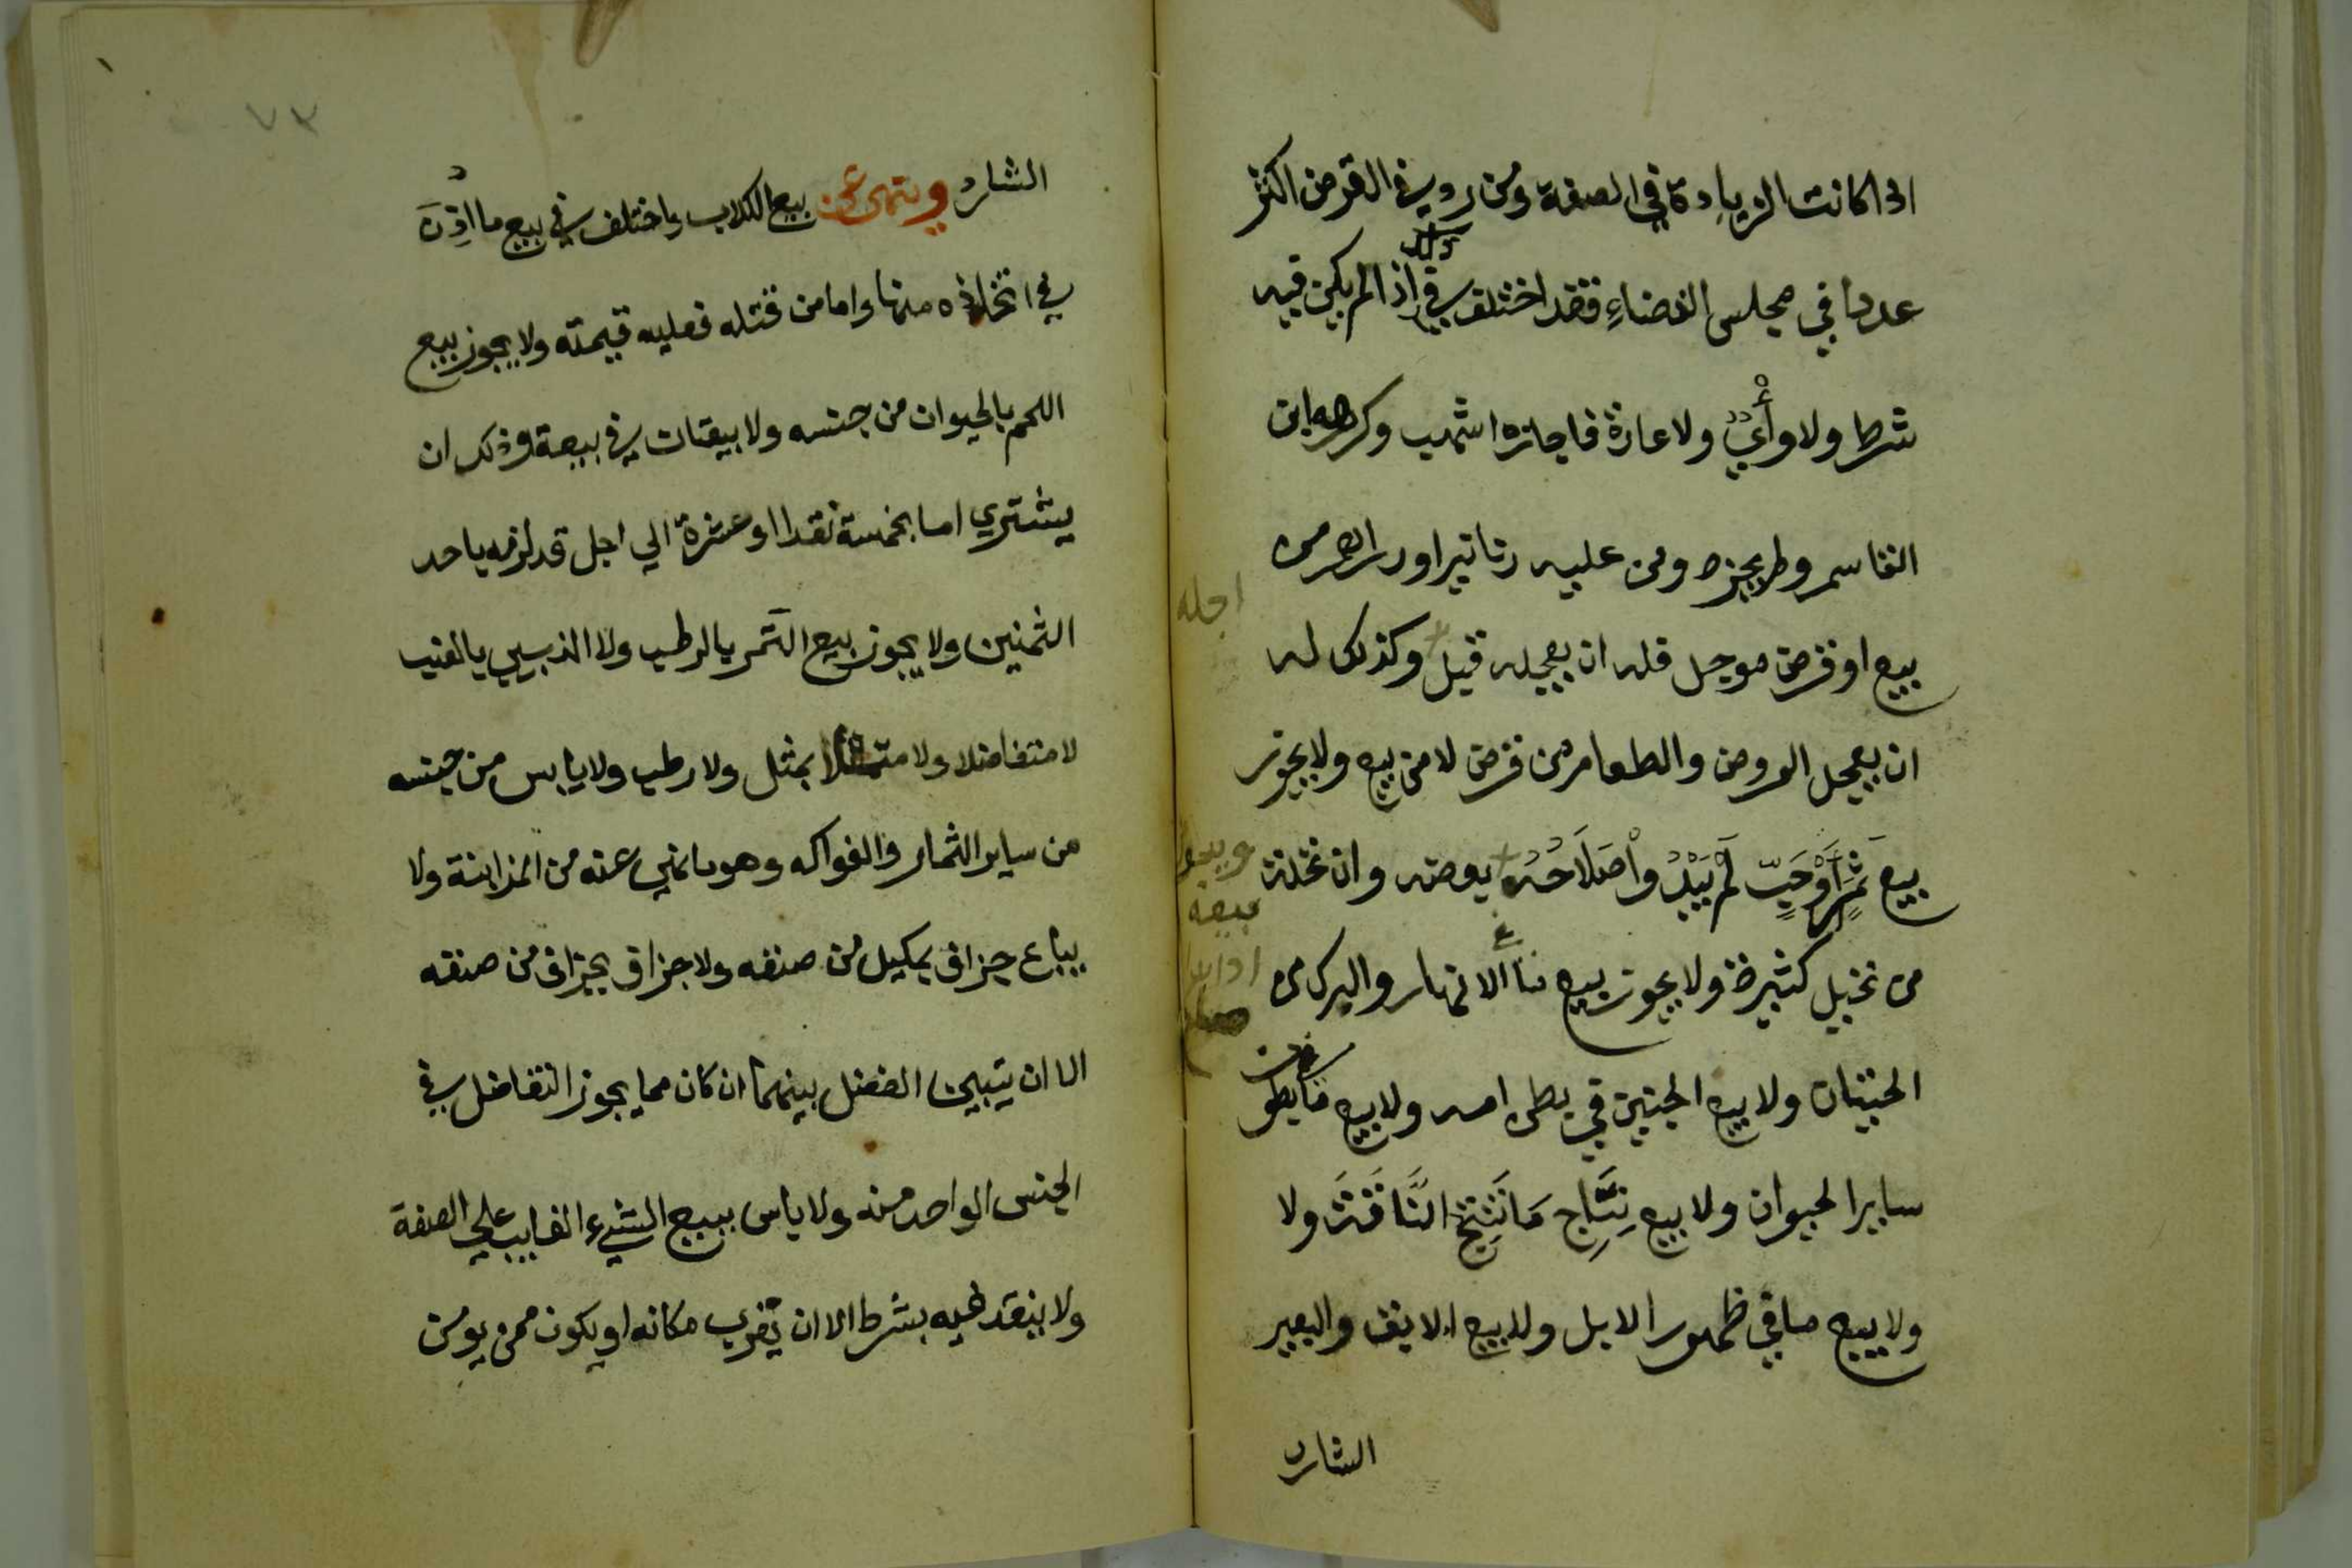 اذا كانت الزيادة في الصفة ومن رد في القرض اكثر
عددا في مجلس القضاء فقد اختلف في ذلك اذا لم يكن فيه
شرط ولا وأي ولا عادة فاجازه اشهب وكرهه ابن
القاسم ولم يجزه ومن عليه دنانير او دراهم من
بيع او قرض موجل فله ان يعجله قبل اجله وكذلك له
ان يعجل العروض والطعام من قرض لا من بيع ولا يجوز
بيع ثمر او حب لم يبد واصلاحه ويجوز بيعه اذا بدا صلاح بعضه وان نخلة
من نخيل كثيرة ولا يجوز بيع ما في الانهار والبرك من
الحيتان ولا بيع الجنين في بطن امه ولا بيع ما في بطون
ساير الحيوان ولا بيع نتاج ما تنتج الناقة ولا
ولا بيع ما في ظهور الابل ولا بيع الابق والبعير
الشارد
٧٣
الشارد وينهى عن بيع الكلاب واختلف في بيع ما اذن
في اتخاذه منها واما من قتله فعليه قيمته ولا يجوز بيع
اللحم بالحيوان من جنسه ولا بيعتان في بيعة وذلك ان
يشتري اما بخمسة نقدا او عشرة الي اجل قد لزمه باحد
الثمنين ولا يجوز بيع التمر بالرطب ولا الزبيب بالعنب
لا متفاضلا ولا مثلا بمثل ولا رطب ولا يابس من جنسه
من ساير الثمار والفواكه وهو مما نهي عنه من المزابنة ولا
يباع جزاف بمكيل من صنفه ولا جزاف بجزاف من صنفه
الا ان يتبين الفضل بينهما ان كان مما يجوز التفاضل في
الجنس الواحد منه ولا باس ببيع الشيء الغايب علي الصفة
ولا ينقد فيه بشرط الا ان يقرب مكانه او يكون ممن يومن